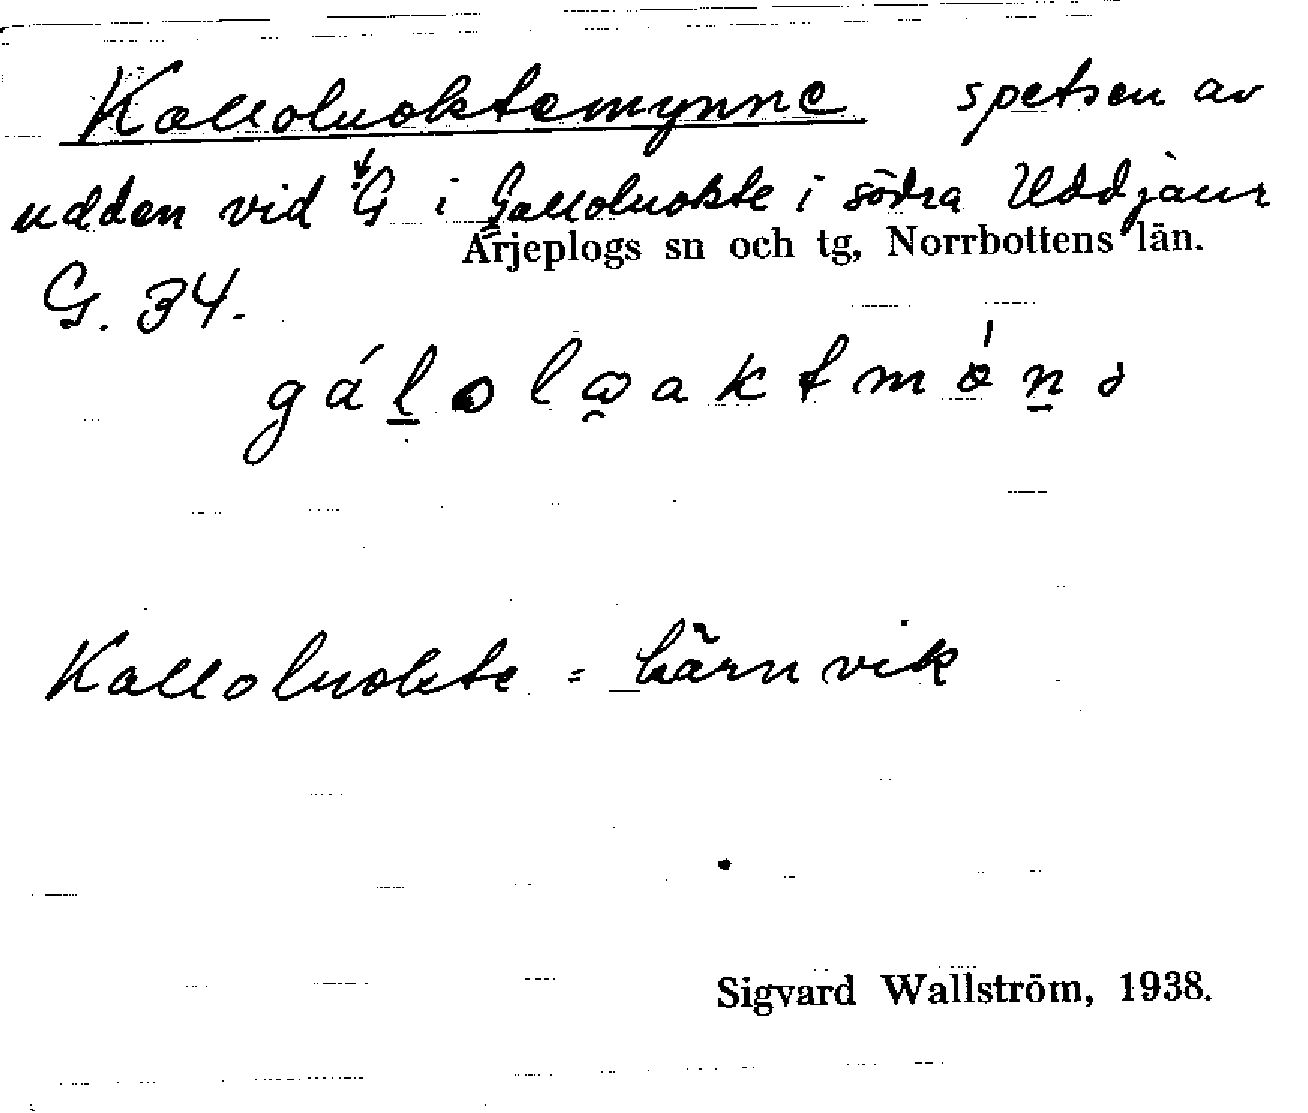 Kalloluoktemynne spetsen av
udden vid G i Galloluokte i södra Uddjaur
Arjeplogs sn och tg, Norrbottens län.
G. 34.
Kalloluokte = kärnvik
Sigvard Wallström, 1938.